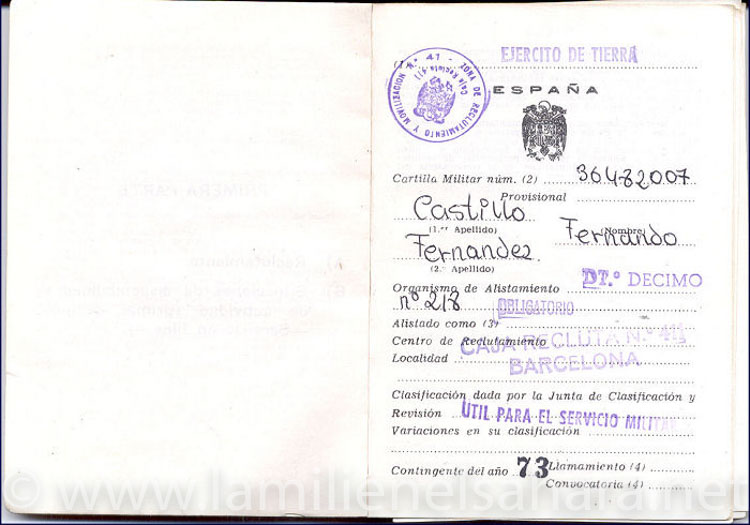 PRIMERA PARTE
A) Reclutamiento.
EJERCITO DE TIERRA
ZONA DE RECLUTAMIENTO Y MOVILIZACION N.º 41 -
Caja Recluta 411
ESPAÑA
Cartilla Militar núm. (2) 36482007
Provisional
Castillo
(1.er Apellido)
Fernando
(Nombre)
Fernandez
(2.º Apellido)
Organismo de Alistamiento DT.º DECIMO
nº 218 OBLIGATORIO
Alistado como (3)
Centro de Reclutamiento CAJA RECLUTA N.º 411
Localidad BARCELONA
Clasificación dada por la Junta de Clasificación y
Revisión UTIL PARA EL SERVICIO MILITAR
Variaciones en su clasificación
Contingente del año 73 Llamamiento (4)
Convocatoria (4)
© www.lamilienelsahara.net